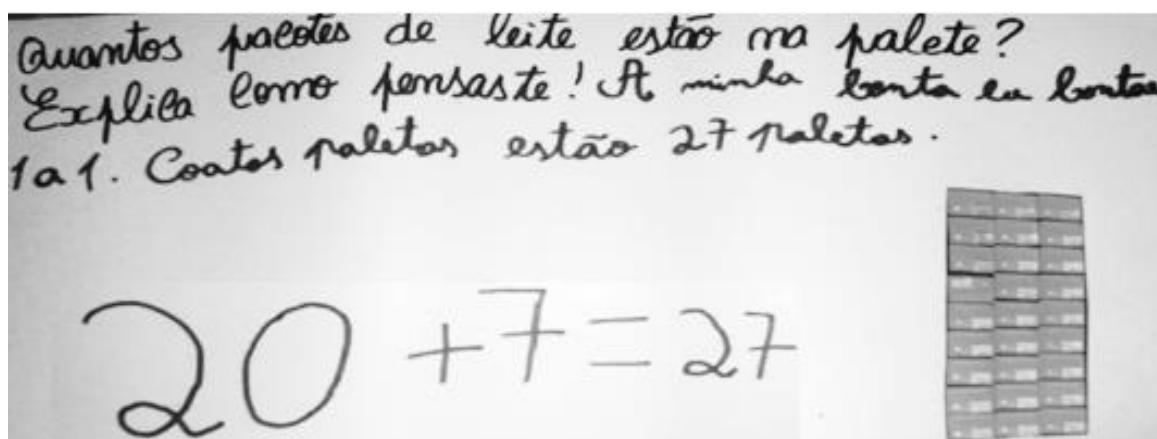 Quantos pacotes de leite estão na palete?
Explica como pensaste! A minha conta eu contei
1 a 1. Coatos paletas estão 27 paletas.
20 + 7 = 27